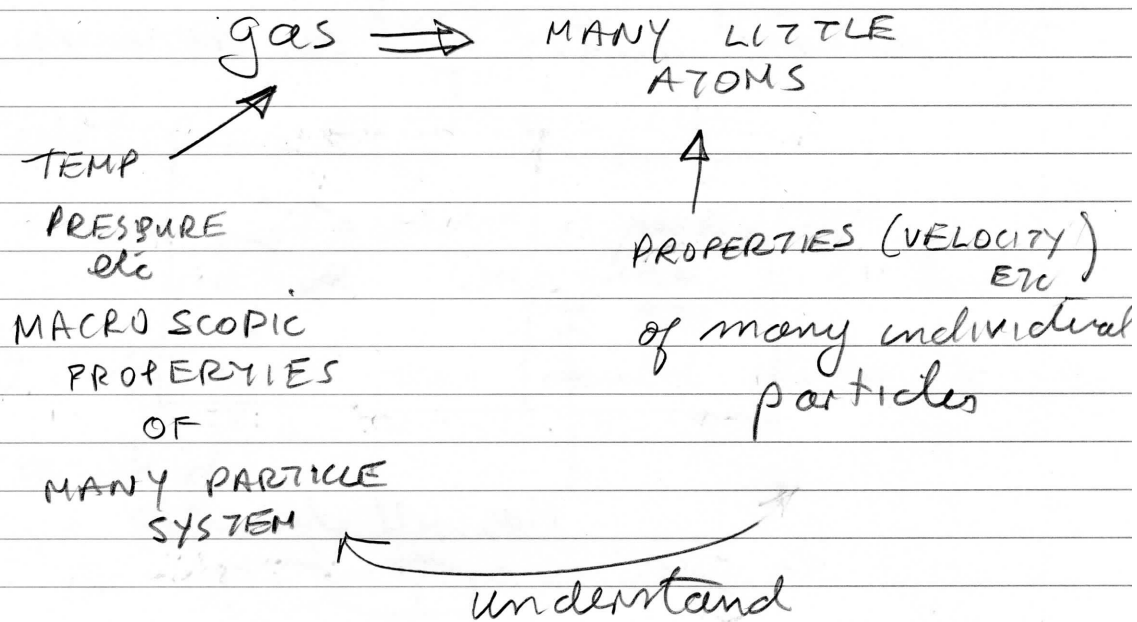 gas ⇒ MANY LITTLE
ATOMS
TEMP
PRESSURE
etc
MACROSCOPIC
PROPERTIES
OF
MANY PARTICLE
SYSTEM
PROPERTIES (VELOCITY
ETC)
of many individual
particles
understand